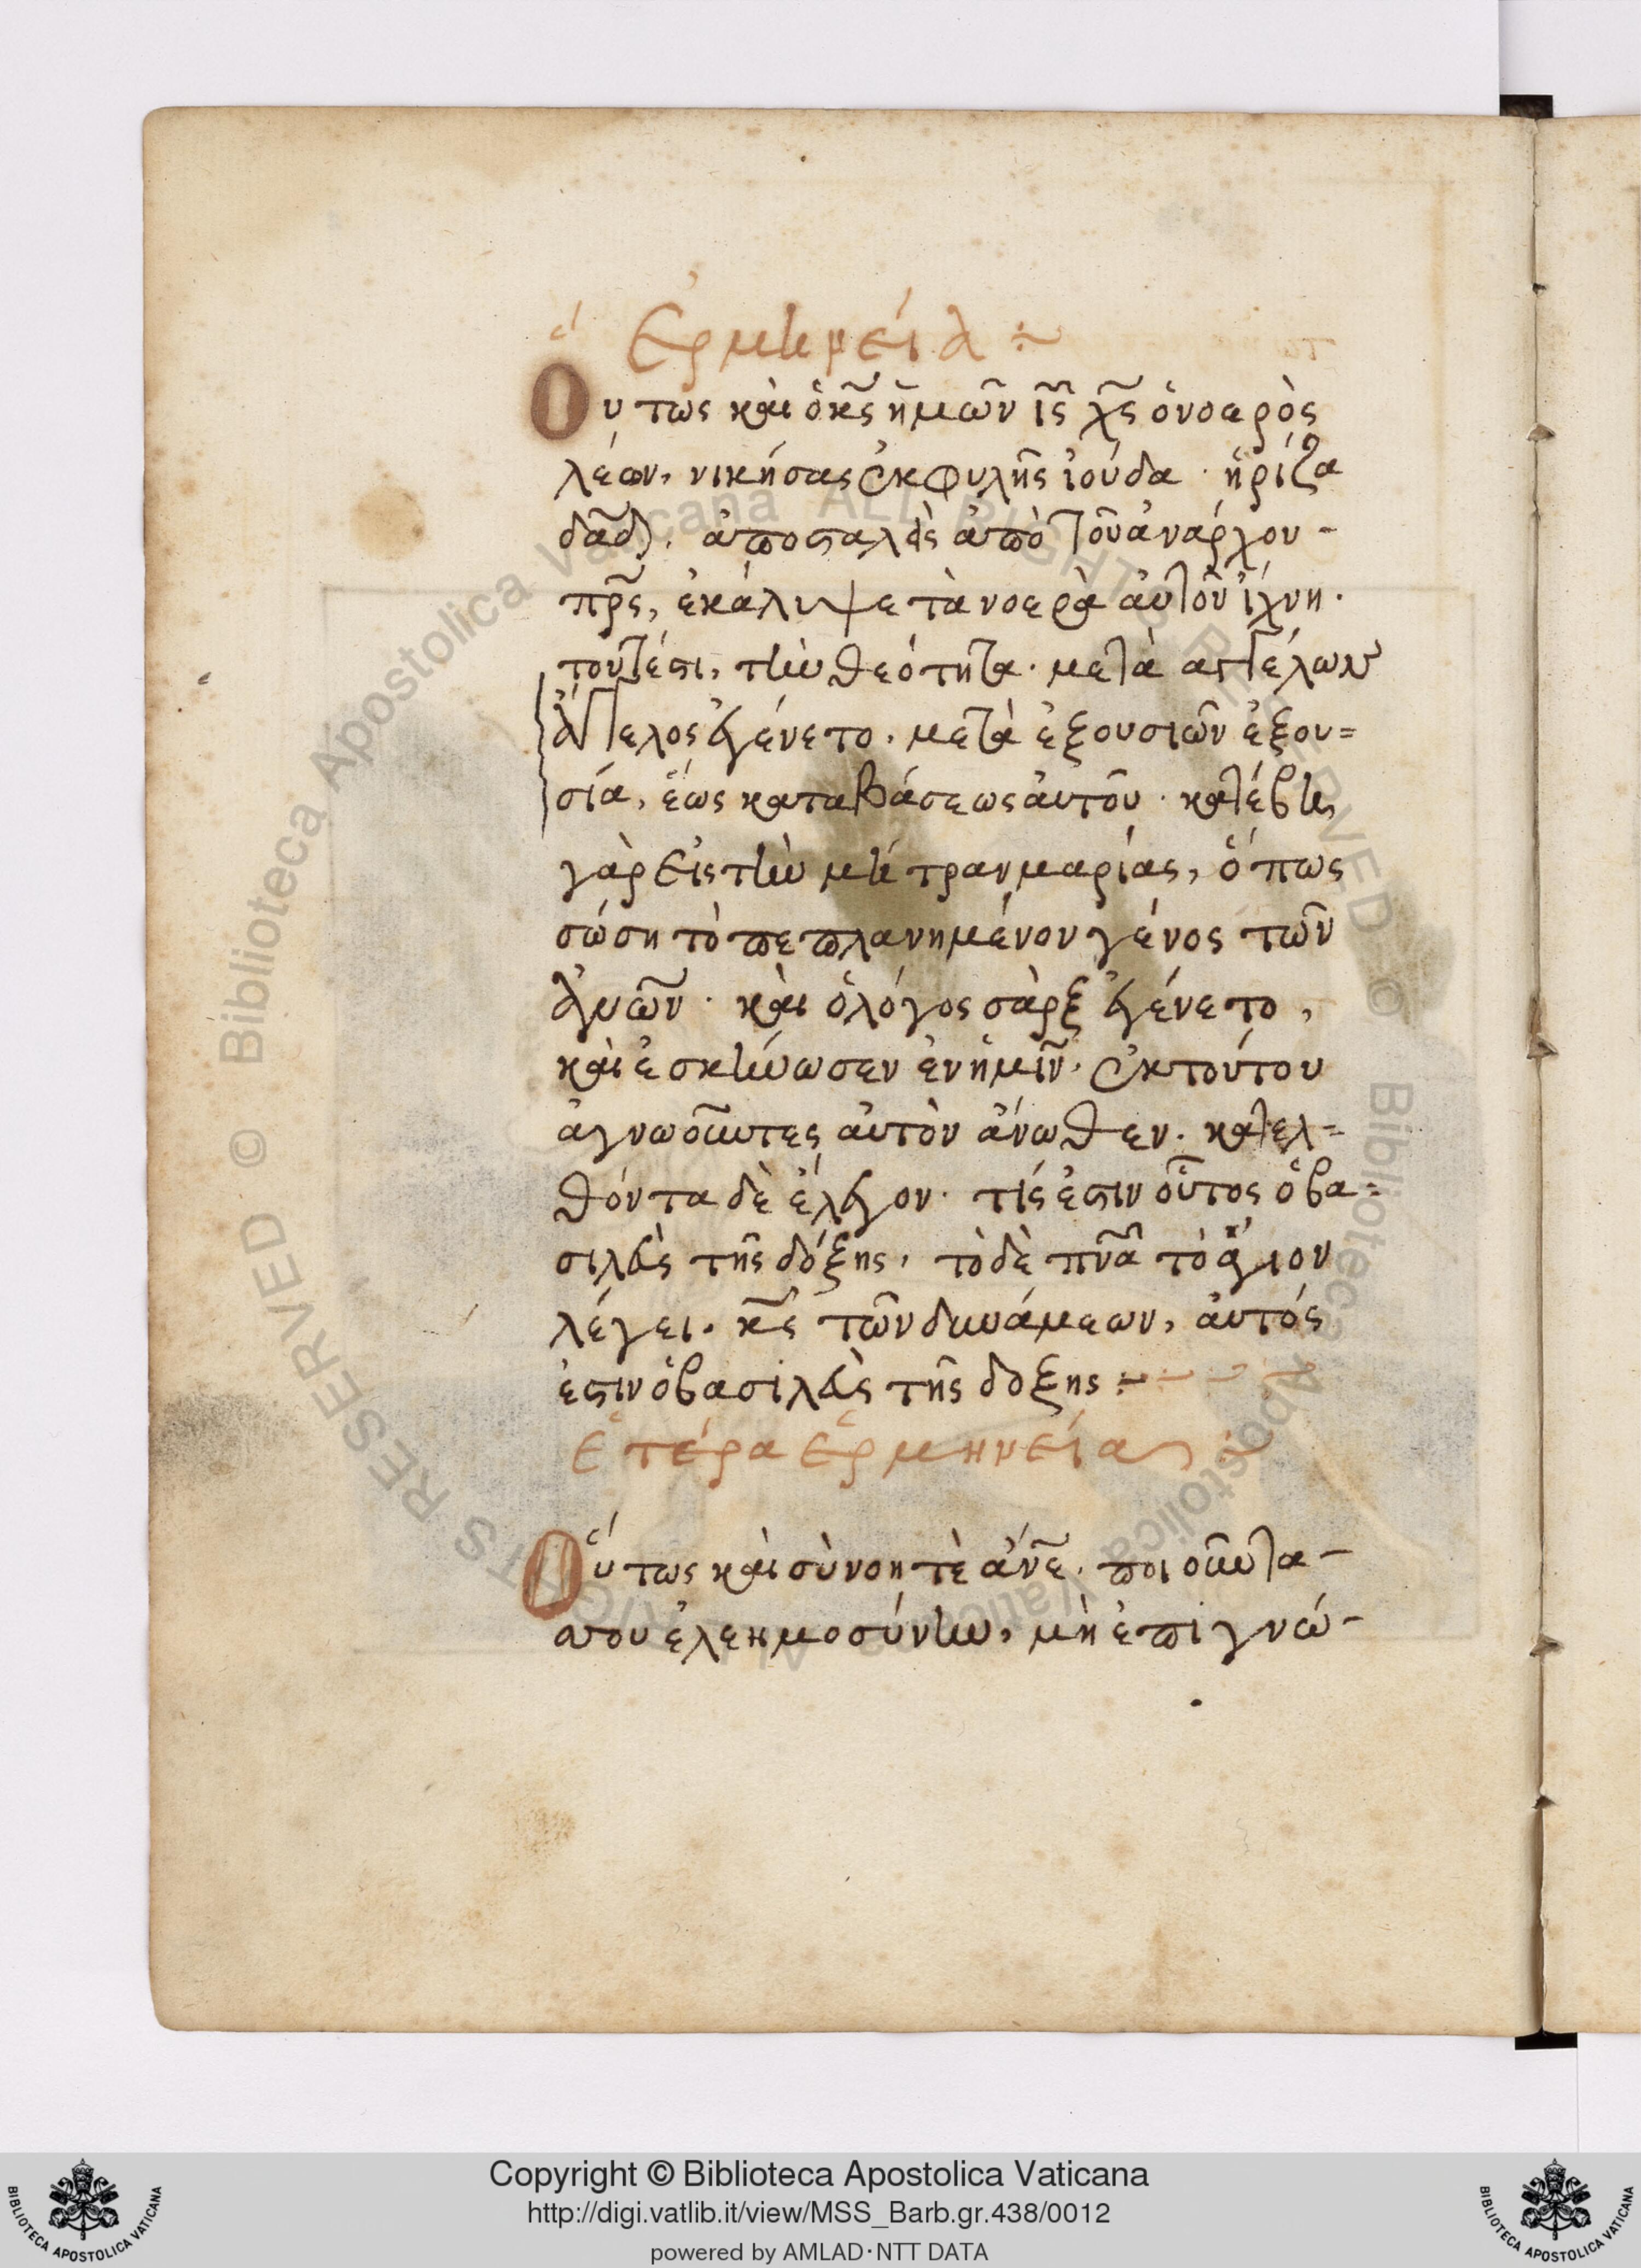 Ἑρμηνεία
Οὕτως καὶ ὁ κ̅ς̅ ἡμῶν ι̅ς̅ χ̅ς̅ ὁ νοερὸς
λέων, νικήσας ἐκ φυλῆς ἰούδα · ἡ ρίζα
δα̅δ̅. ἀποσταλεὶς ἀπὸ τοῦ ἀνάρχου -
π̅ρ̅ς̅, ἐκάλυψε τὰ νοερὰ αὐτοῦ ἴχνη ·
τουτέστι, τὴν θεότητα · μετὰ αγγέλων
ἄγγελος ἐγένετο · μετὰ ἐξουσιῶν ἐξου=
σία, ἕως καταβάσεως αὐτοῦ · κατέβη
γὰρ εἰς τὴν μήτραν μαρίας, ὅπως
σώση τὸ πεπλανημένον γένος τῶν
ἀ̅ν̅ω̅ν̅ · καὶ ὁ λόγος σὰρξ ἐγένετο,
καὶ ἐσκήνωσεν ἐν ἡμῖν · ἐκ τούτου
ἀγνωοῦντες αὐτὸν ἄνωθεν · κατελ=
θόντα δὲ ἔλεγον · τίς ἐστιν οὗτος ὁ βα=
σιλεὺς τῆς δόξης, τὸ δὲ π̅ν̅α̅ τὸ ἅγιον
λέγει · κ̅ς̅ τῶν δυνάμεων, αὐτός
ἐστιν ὁ βασιλεὺς τῆς δοξης
Ἑτέρα ἑρμηνεία
Οὕτως καὶ σὺ νοητὲ ἄ̅ν̅ε̅ · ποιοῦντα -
σου ἐλεημοσύνην, μὴ ἐπιγνώ -
Copyright © Biblioteca Apostolica Vaticana
http://digi.vatlib.it/view/MSS_Barb.gr.438/0012
powered by AMLAD·NTT DATA
BIBLIOTECA APOSTOLICA VATICANA
BIBLIOTECA APOSTOLICA VATICANA